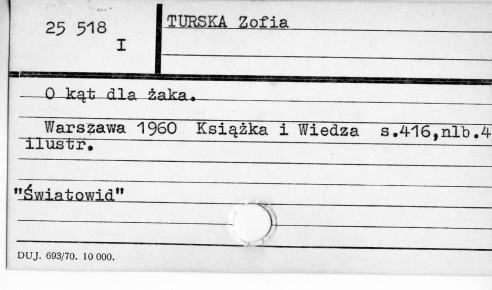 25 518
I
TURSKA Zofia
O kąt dla żaka.
Warszawa 1960 Książka i Wiedza s.416,nlb.4
ilustr.
"Światowid"
DUJ. 693/70. 10 000.